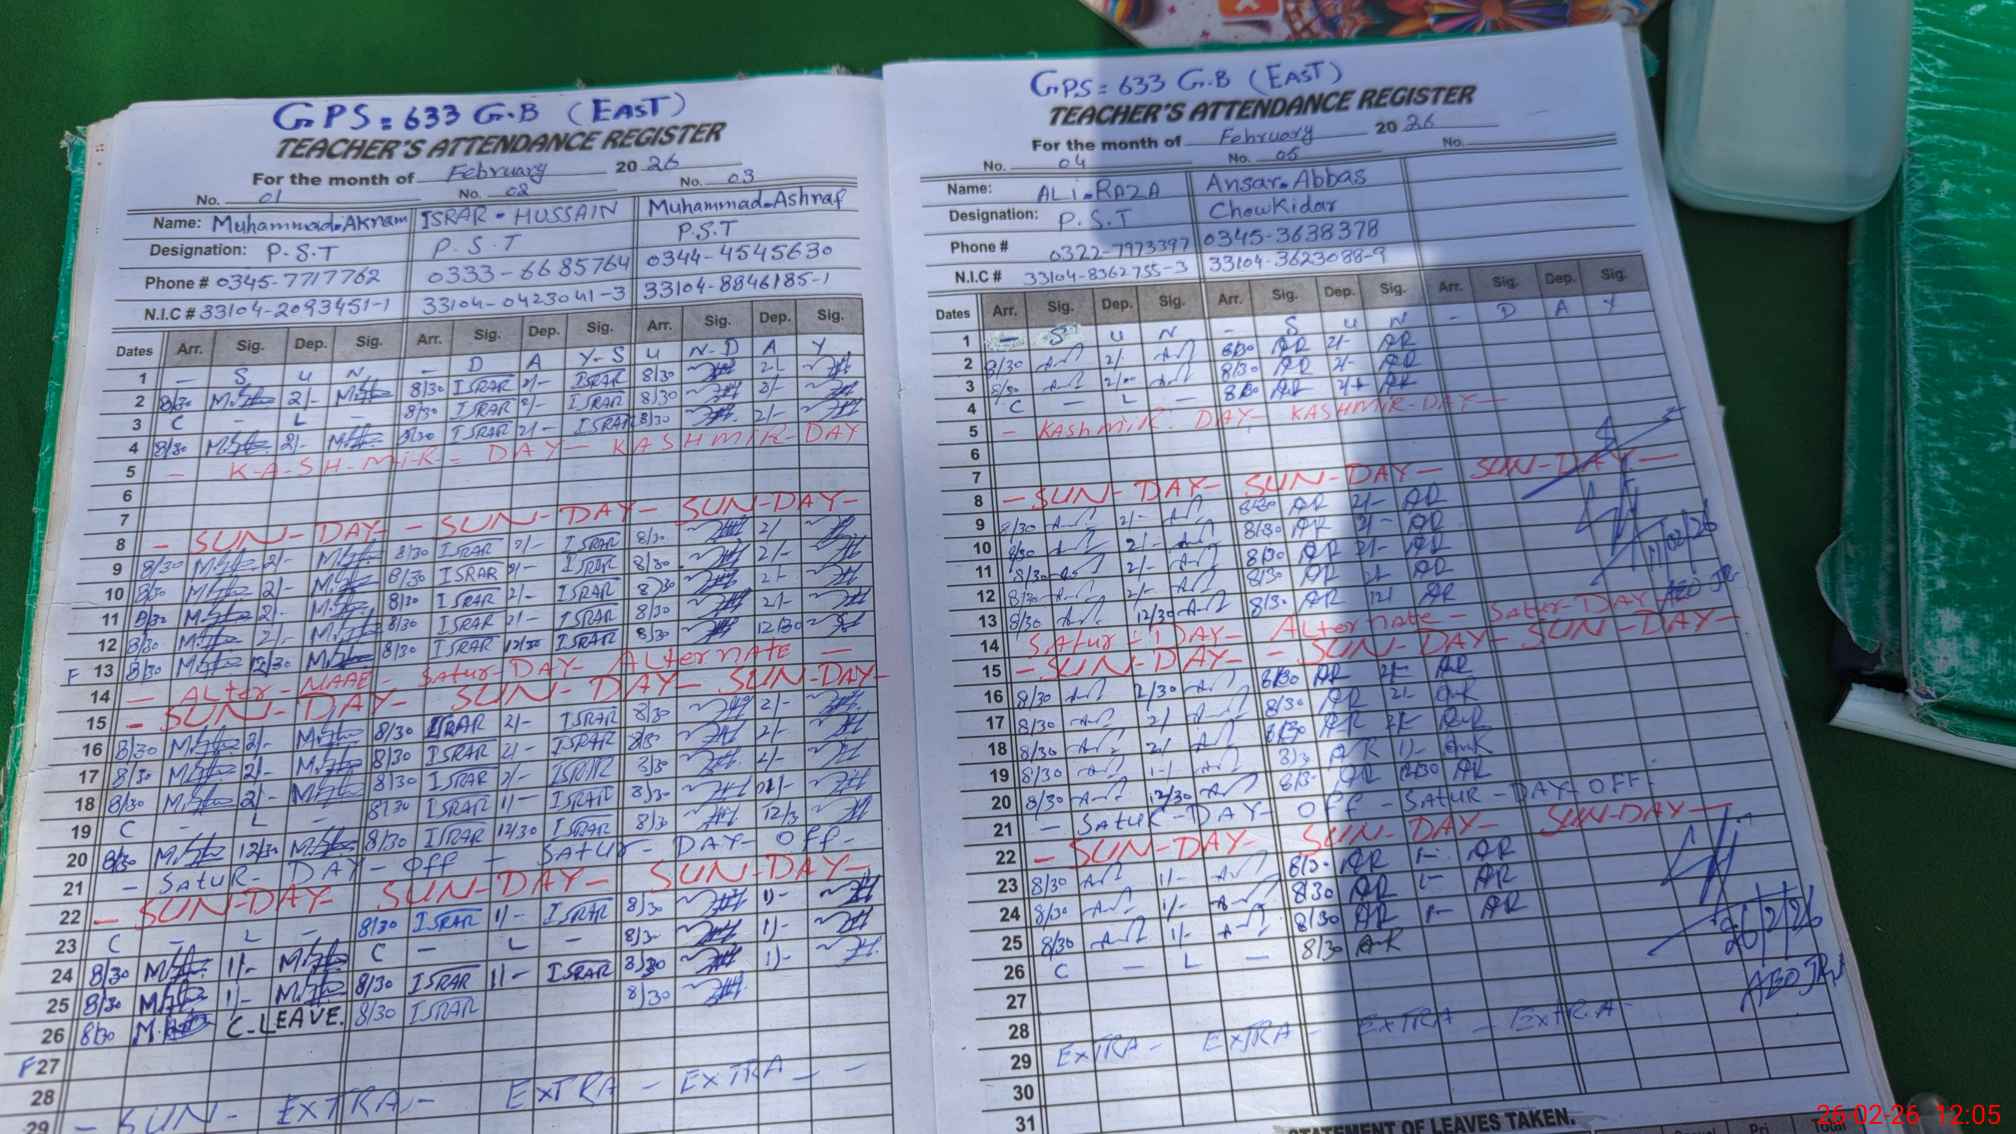 GPS = 633 G.B (EAST)
TEACHER'S ATTENDANCE REGISTER
For the month of February 20 26
No. 01 No. 02 No. 03
Name: Muhammad. Akram ISRAR. HUSSAIN Muhammad. Ashraf
Designation: P.S.T P.S.T P.S.T
Phone # 0345-7717762 0333-6685764 0344-4545630
N.I.C # 33104-2093451-1 33104-0423041-3 33104-8846185-1
Dates Arr. Sig. Dep. Sig. Arr. Sig. Dep. Sig. Arr. Sig. Dep. Sig.
1 - S U N. - D A Y-S U N-D A Y
2 8/30 2/- 8/30 ISRAR 2/- ISRAR 8/30 2/-
3 C - L - 8/30 ISRAR 2/- ISRAR 8/30 2/-
4 8/30 2/- 8/30 ISRAR 2/- ISRAR 8/30 2/-
5 - KASHMIR - DAY - KASHMIR - DAY
6
7
8 - SUN-DAY - SUN-DAY - SUN-DAY -
9 8/30 2/- 8/30 ISRAR 2/- ISRAR 8/30 2/
10 8/30 2/- 8/30 ISRAR 2/- ISRAR 8/30 2/-
11 8/30 2/- 8/30 ISRAR 2/- ISRAR 8/30 2/-
12 8/30 2/- 8/30 ISRAR 2/- ISRAR 8/30 2/-
F 13 8/30 12/30 8/30 ISRAR 12/30 ISRAR 8/30 12/30
14 - Satur-DAY - Alternate -
15 - SUN-DAY - SUN-DAY - SUN-DAY -
16 8/30 2/- 8/30 ISRAR 2/- ISRAR 8/30 2/-
17 8/30 2/- 8/30 ISRAR 2/- ISRAR 8/30 2/-
18 8/30 2/- 8/30 ISRAR 2/- ISRAR 8/30 2/-
19 C - L - 8/30 ISRAR 1/- ISRAR 8/30
20 8/30 12/30 8/30 ISRAR 12/30 ISRAR 8/30 12/3
21 - SATUR-DAY - OFF - SATUR-DAY-OFF-
22 - SUN-DAY - SUN-DAY - SUN-DAY -
23 C - L - 8/30 ISRAR 1/- ISRAR 8/30 1/-
24 8/30 1/- C - L - 8/30 1/-
25 8/30 1/- 8/30 ISRAR 1/- ISRAR 8/30 1/-
26 8/30 C-LEAVE. 8/30 ISRAR 8/30
F27
28
29 - SUN - EXTRA - EXTRA - EXTRA - -
GPS = 633 G.B (EAST)
TEACHER'S ATTENDANCE REGISTER
For the month of February 20 26
No. 04 No. 05 No.
Name: ALI. RAZA Ansar. Abbas
Designation: P.S.T ChowKidar
Phone # 0322-7973397 0345-3638378
N.I.C # 33104-8362755-3 33104-3623088-9
Dates Arr. Sig. Dep. Sig. Arr. Sig. Dep. Sig. Arr. Sig. Dep. Sig.
1 - S U N - S U N - D A Y
2 8/30 2/- 8/30 AR 2/- AR
3 8/30 2/- 8/30 AR 2/- AR
4 C - L - 8/30 AR 2/- AR
5 - KASHMIR. DAY - KASHMIR-DAY -
6
7
8 - SUN-DAY - SUN-DAY - SUN-DAY -
9 8/30 2/- 8/30 AR 2/- AR
10 8/30 2/- 8/30 AR 2/- AR
11 8/30 2/- 8/30 AR 2/- AR
12 8/30 2/- 8/30 AR 2/- AR
13 8/30 12/30 8/30 AR 12/ AR
11/02/26
AEO JR
14 Satur-DAY - Alternate - Satur-DAY
15 - SUN-DAY - SUN-DAY - SUN-DAY -
16 8/30 2/30 8/30 AR 2/- AR
17 8/30 2/ 8/30 AR 2/- AR
18 8/30 2/ 8/30 AR 2/- AR
19 8/30 1/- 8/30 AR 1/- AR
20 8/30 12/30 8/30 AR 12/30 AR
21 - SATUR-DAY - OFF - SATUR-DAY-OFF.
22 - SUN-DAY - SUN-DAY - SUN-DAY -
23 8/30 1/- 8/30 AR 1- AR
24 8/30 1/- 8/30 AR 1- AR
25 8/30 1/- 8/30 AR 1- AR
26 C - L - 8/30 AR
26/2/26
AEO JR
27
28
29 EXTRA - EXTRA - EXTRA - EXTRA -
30
31
STATEMENT OF LEAVES TAKEN.
Total
26-02-26 12:05